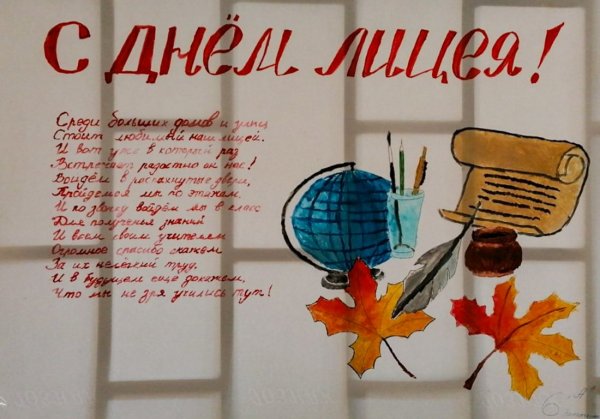 С ДНЁМ ЛИЦЕЯ!
Среди больших домов и улиц
Стоит любимый наш лицей.
И вот уже в который раз
Встречает радостно он нас!
Войдём в распахнутые двери,
Пройдёмся мы по этажам,
И по звонку войдём мы в класс
Для получения знаний
И всем своим учителям
Огромное спасибо скажем
За их нелёгкий труд.
И в будущем ещё докажем,
Что мы не зря учились тут!
6 "А"